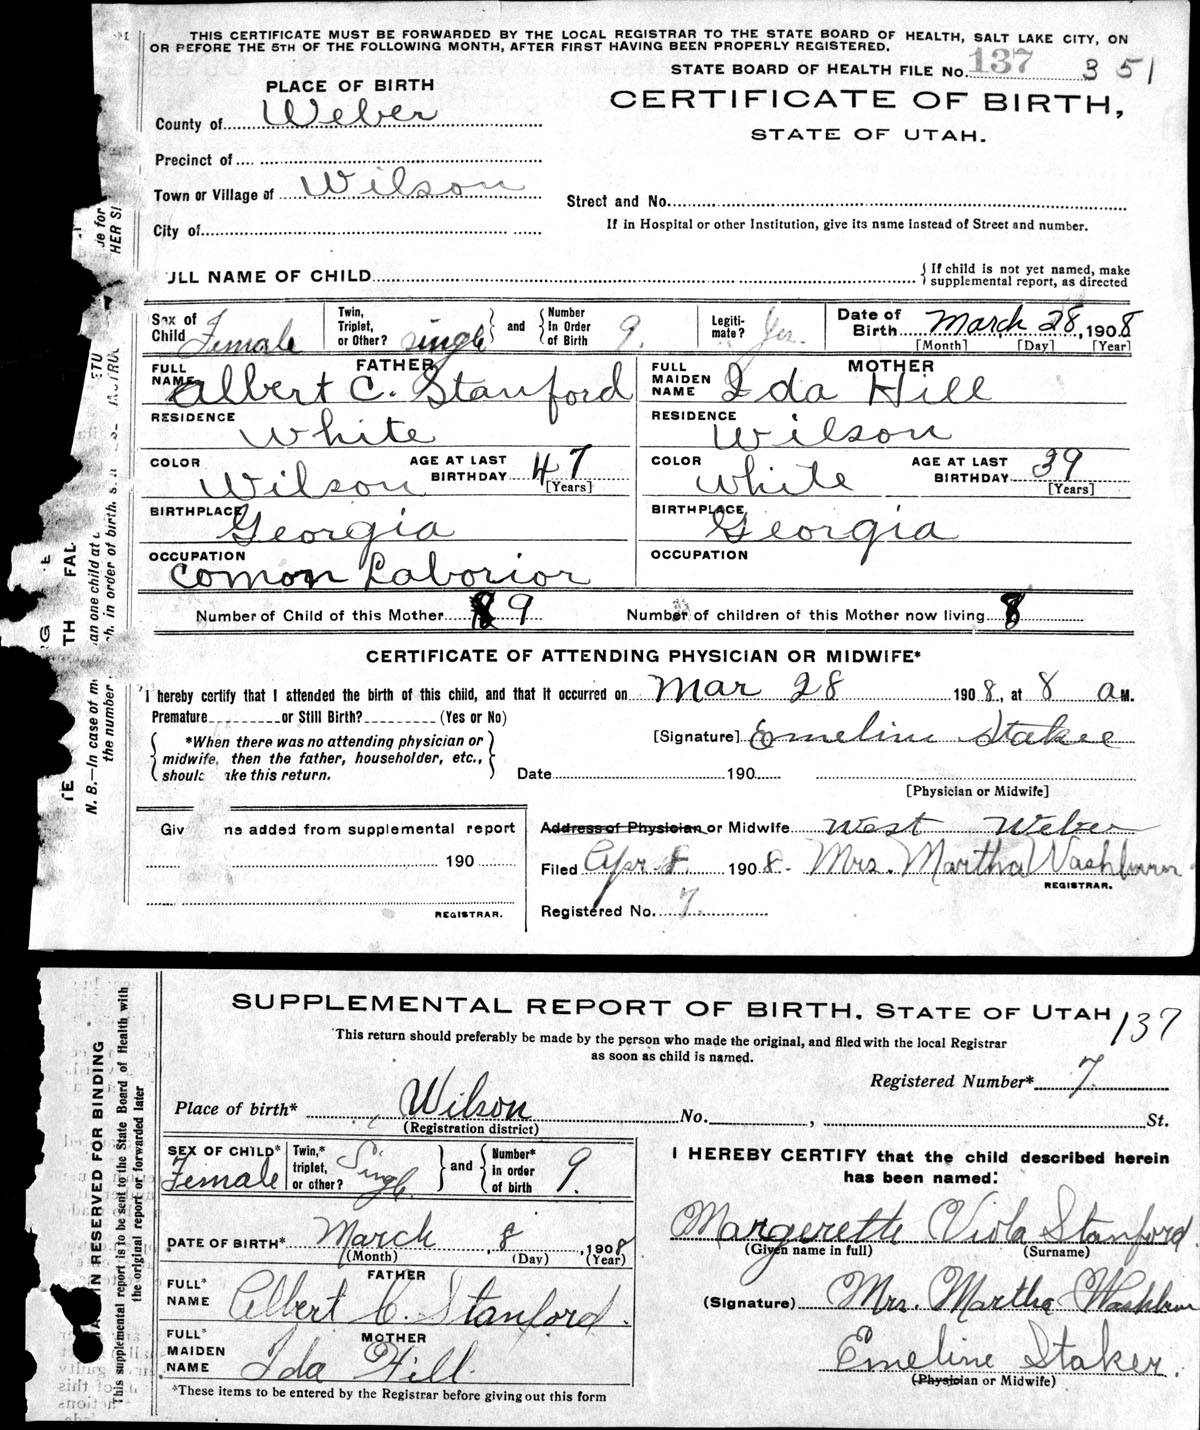 THIS CERTIFICATE MUST BE FORWARDED BY THE LOCAL REGISTRAR TO THE STATE BOARD OF HEALTH, SALT LAKE CITY, ON
OR BEFORE THE 5TH OF THE FOLLOWING MONTH, AFTER FIRST HAVING BEEN PROPERLY REGISTERED.
STATE BOARD OF HEALTH FILE No. 137 351
PLACE OF BIRTH
CERTIFICATE OF BIRTH,
County of Weber
STATE OF UTAH.
Precinct of
Town or Village of Wilson
Street and No.
City of
If in Hospital or other Institution, give its name instead of Street and number.
ULL NAME OF CHILD
If child is not yet named, make
supplemental report, as directed
Sex of Child Female
Twin, Triplet, or Other? single
and
Number In Order of Birth 9.
Legiti-mate? Yes.
Date of Birth March 28, 1908
[Month] [Day] [Year]
FATHER
FULL NAME Albert C. Stanford
MOTHER
FULL MAIDEN NAME Ida Hill
RESIDENCE White
RESIDENCE Wilson
COLOR Wilson
AGE AT LAST BIRTHDAY 47
[Years]
COLOR White
AGE AT LAST BIRTHDAY 39
[Years]
BIRTHPLACE Georgia
BIRTHPLACE Georgia
OCCUPATION Comon Laborior
OCCUPATION
Number of Child of this Mother 9
Number of children of this Mother now living 8
CERTIFICATE OF ATTENDING PHYSICIAN OR MIDWIFE*
I hereby certify that I attended the birth of this child, and that it occurred on Mar 28 1908, at 8 a M.
Premature or Still Birth? (Yes or No)
*When there was no attending physician or
midwife, then the father, householder, etc.,
shoul ake this return.
[Signature] Emeline Staker
Date 190
[Physician or Midwife]
Giv ns added from supplemental report
190
REGISTRAR.
Address of Physician or Midwife West Weber
Filed Apr 8 1908 - Mrs. Martha Washburn
REGISTRAR.
Registered No. 7
SUPPLEMENTAL REPORT OF BIRTH, STATE OF UTAH
137
This return should preferably be made by the person who made the original, and filed with the local Registrar
as soon as child is named.
Registered Number* 7.
Place of birth* Wilson No. , St.
(Registration district)
SEX OF CHILD* Female
Twin,* triplet, or other? Single
and
Number* in order of birth 9.
DATE OF BIRTH* March, 8, 1908
(Month) (Day) (Year)
FATHER
FULL* NAME Albert C. Stanford.
MOTHER
FULL* MAIDEN NAME Ida Hill.
*These items to be entered by the Registrar before giving out this form
I HEREBY CERTIFY that the child described herein
has been named:
Margerette Viola Stanford
(Given name in full) (Surname)
(Signature) Mrs. Martha Washburn
Emeline Staker.
(Physician or Midwife)
N. B.—In case of m an one child at
the number ch, in order of birth.
IN RESERVED FOR BINDING
This supplemental report is to be sent to the State Board of Health with
the original report or forwarded later